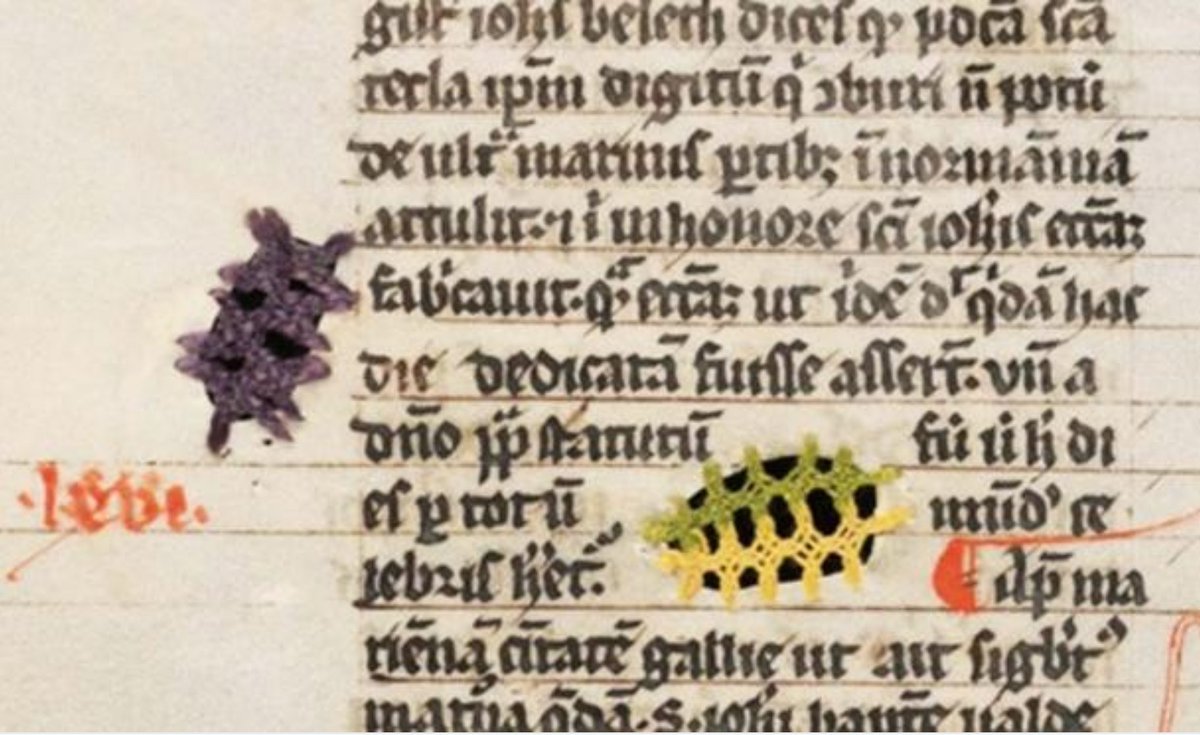 gist̄ ioh̄is beleth dicēs qꝫ p̄dc̄ā sc̄a
tecla ip̄m digitū q̇ ↄburi n̄ potu
de ult͛ marinis ꝑtibꝫ ī normāniā
attulit. ⁊ i in honore sc̄i ioh̄is ecc̄aꝫ
fab͛cauit. q̄ ecc̄aꝫ ut idē dr̄ q̇dā hac
die dedicatā fuisse asserit̄. vn̄ a
dn̄o pp̄ statutū fū ii h̄ di
es ꝑ totū mūd' ce
.leve.
lebris h̄et͛. Ap̄ ma
riēnā cītatē gallie ut ait sigbt͛'
matrōa q̄dā. s. ioh̄i bapt̄e ualde